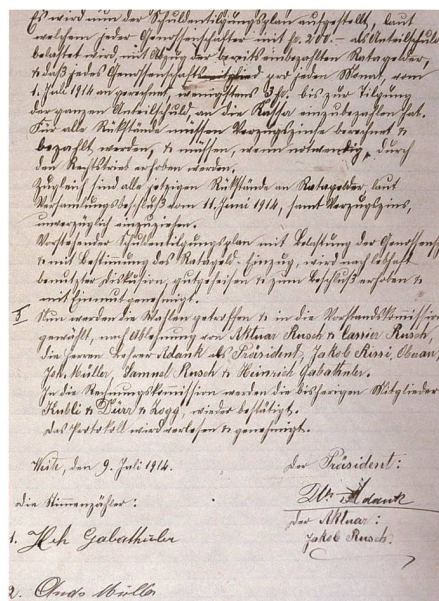 Es wird nun der Schuldentilgungsplan aufgestellt, laut
welchem jeder Genossenschafter mit fr. 200.– als Anteilschuld
belastet wird mit Abzug der bereits einbezahlten Ratagelder,
& daß jedes Genossenschaftsmitglied pro jeden Monat, vom
1. Juli 1914 an gerechnet, wenigstens 3 fr. bis zur Tilgung
der ganzen Anteilschuld an die Kassa einzubezahlen hat.
Für alle Rükstände müssen Verzugszinse berechnet &
bezahlt werden, & müssen, wenn notwendig, durch
den Rechtstrieb erhoben werden.
Zugleich sind alle jetzigen Rükstände an Ratagelder, laut
Versammlungsbeschluß vom 11. Juni 1914, samt Verzugszins,
unverzüglich einzuziehen.
Vorstehender Schuldentilgungsplan mit Belastung der Genossensch
& mit Bestimmung des Ratageld-Einzug, wird nach lebhaft
benutzter Diskusion, gutgeheisen & zum Beschluß erhoben &
mit Einmut genehmigt.
5 Nun werden die Wahlen getroffen & in die Vorstandskommission
gewählt, nach Ablehnung von Aktuar Rusch & Cassier Rusch,
die Herren Lehrer Adank als Präsident, Jakob
Joh. Müller, Samuel Rusch & Heinrich Gabathuler.
In die Rechnungskommission werden die bisherigen Mitglieder
Kubli & Dürr & Zogg, wieder bestätigt.
Das Protokoll wird verlesen & genehmigt.
Weite, den 9. Juli 1914.
Der Präsident:
Adank
Die Stimmenzähler:
Der Aktuar:
Jakob Rusch.
1. Hch Gabathuler
2. Müller